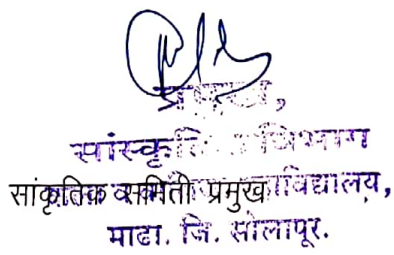 प्रमुख,
सांस्कृतिक विभाग
सांकृतिक समिती प्रमुख
महाविद्यालय,
माढा. जि. सोलापूर.